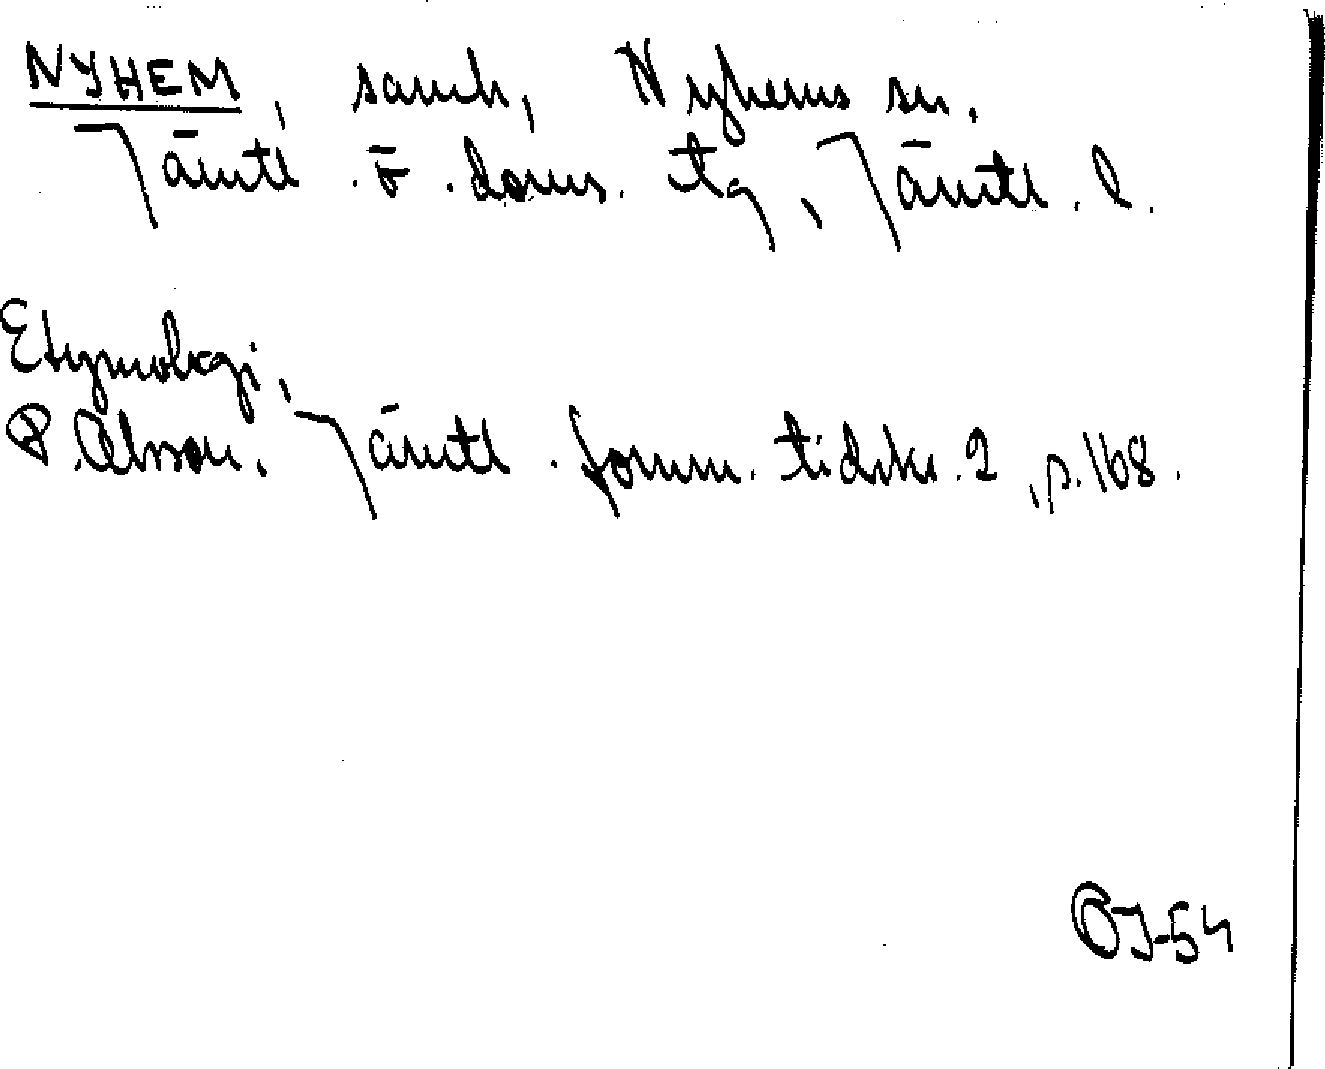 NYHEM, samh, Nyhems sn.
Jämtl. ö. doms. tg, Jämtl. l.
Etymologi,
P. Olsson. Jämtl. fornm. tidskr. 2, p. 168.
OJ-54